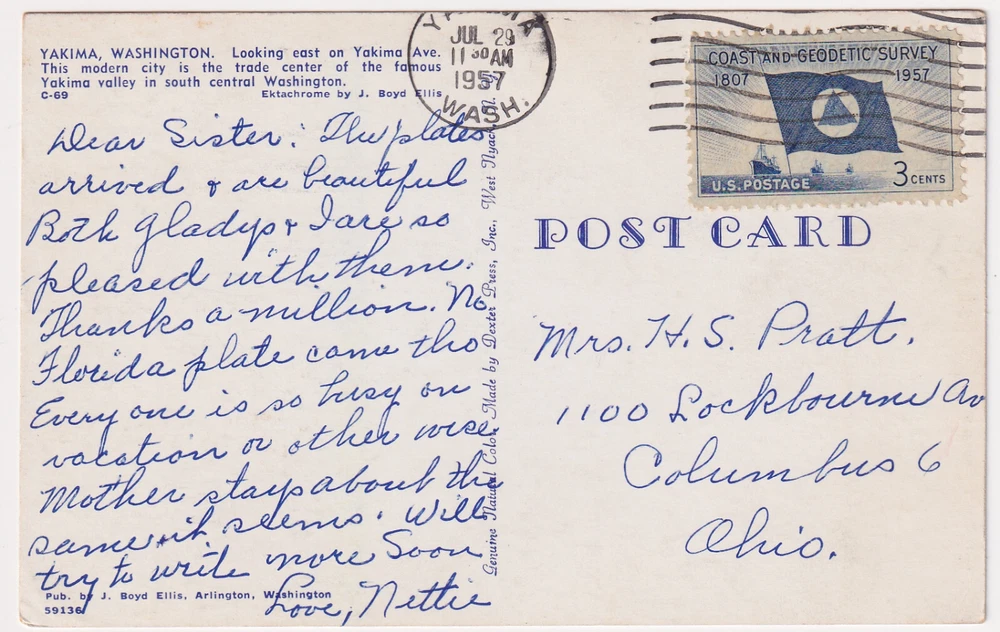 YAKIMA, WASHINGTON. Looking east on Yakima Ave.
This modern city is the trade center of the famous
Yakima valley in south central Washington.
C-69 Ektachrome by J. Boyd Ellis
Dear Sister: The plates
arrived & are beautiful
Both Gladys & I are so
pleased with them.
Thanks a million. No
Florida plate came tho
Every one is so busy on
vacation or other wise
Mother stays about the
same it seems. Will
try to write more Soon
Love, Nettie
Pub. by J. Boyd Ellis, Arlington, Washington
59136
Genuine Natural Color Made by Dexter Press, Inc., West Nyack, N.
YAKIMA
JUL 29
11 30 AM
1957
WASH.
COAST AND GEODETIC SURVEY
1807 1957
U.S. POSTAGE 3 CENTS
POST CARD
Mrs. H. S. Pratt.
1100 Lockbourne Av
Columbus 6
Ohio.